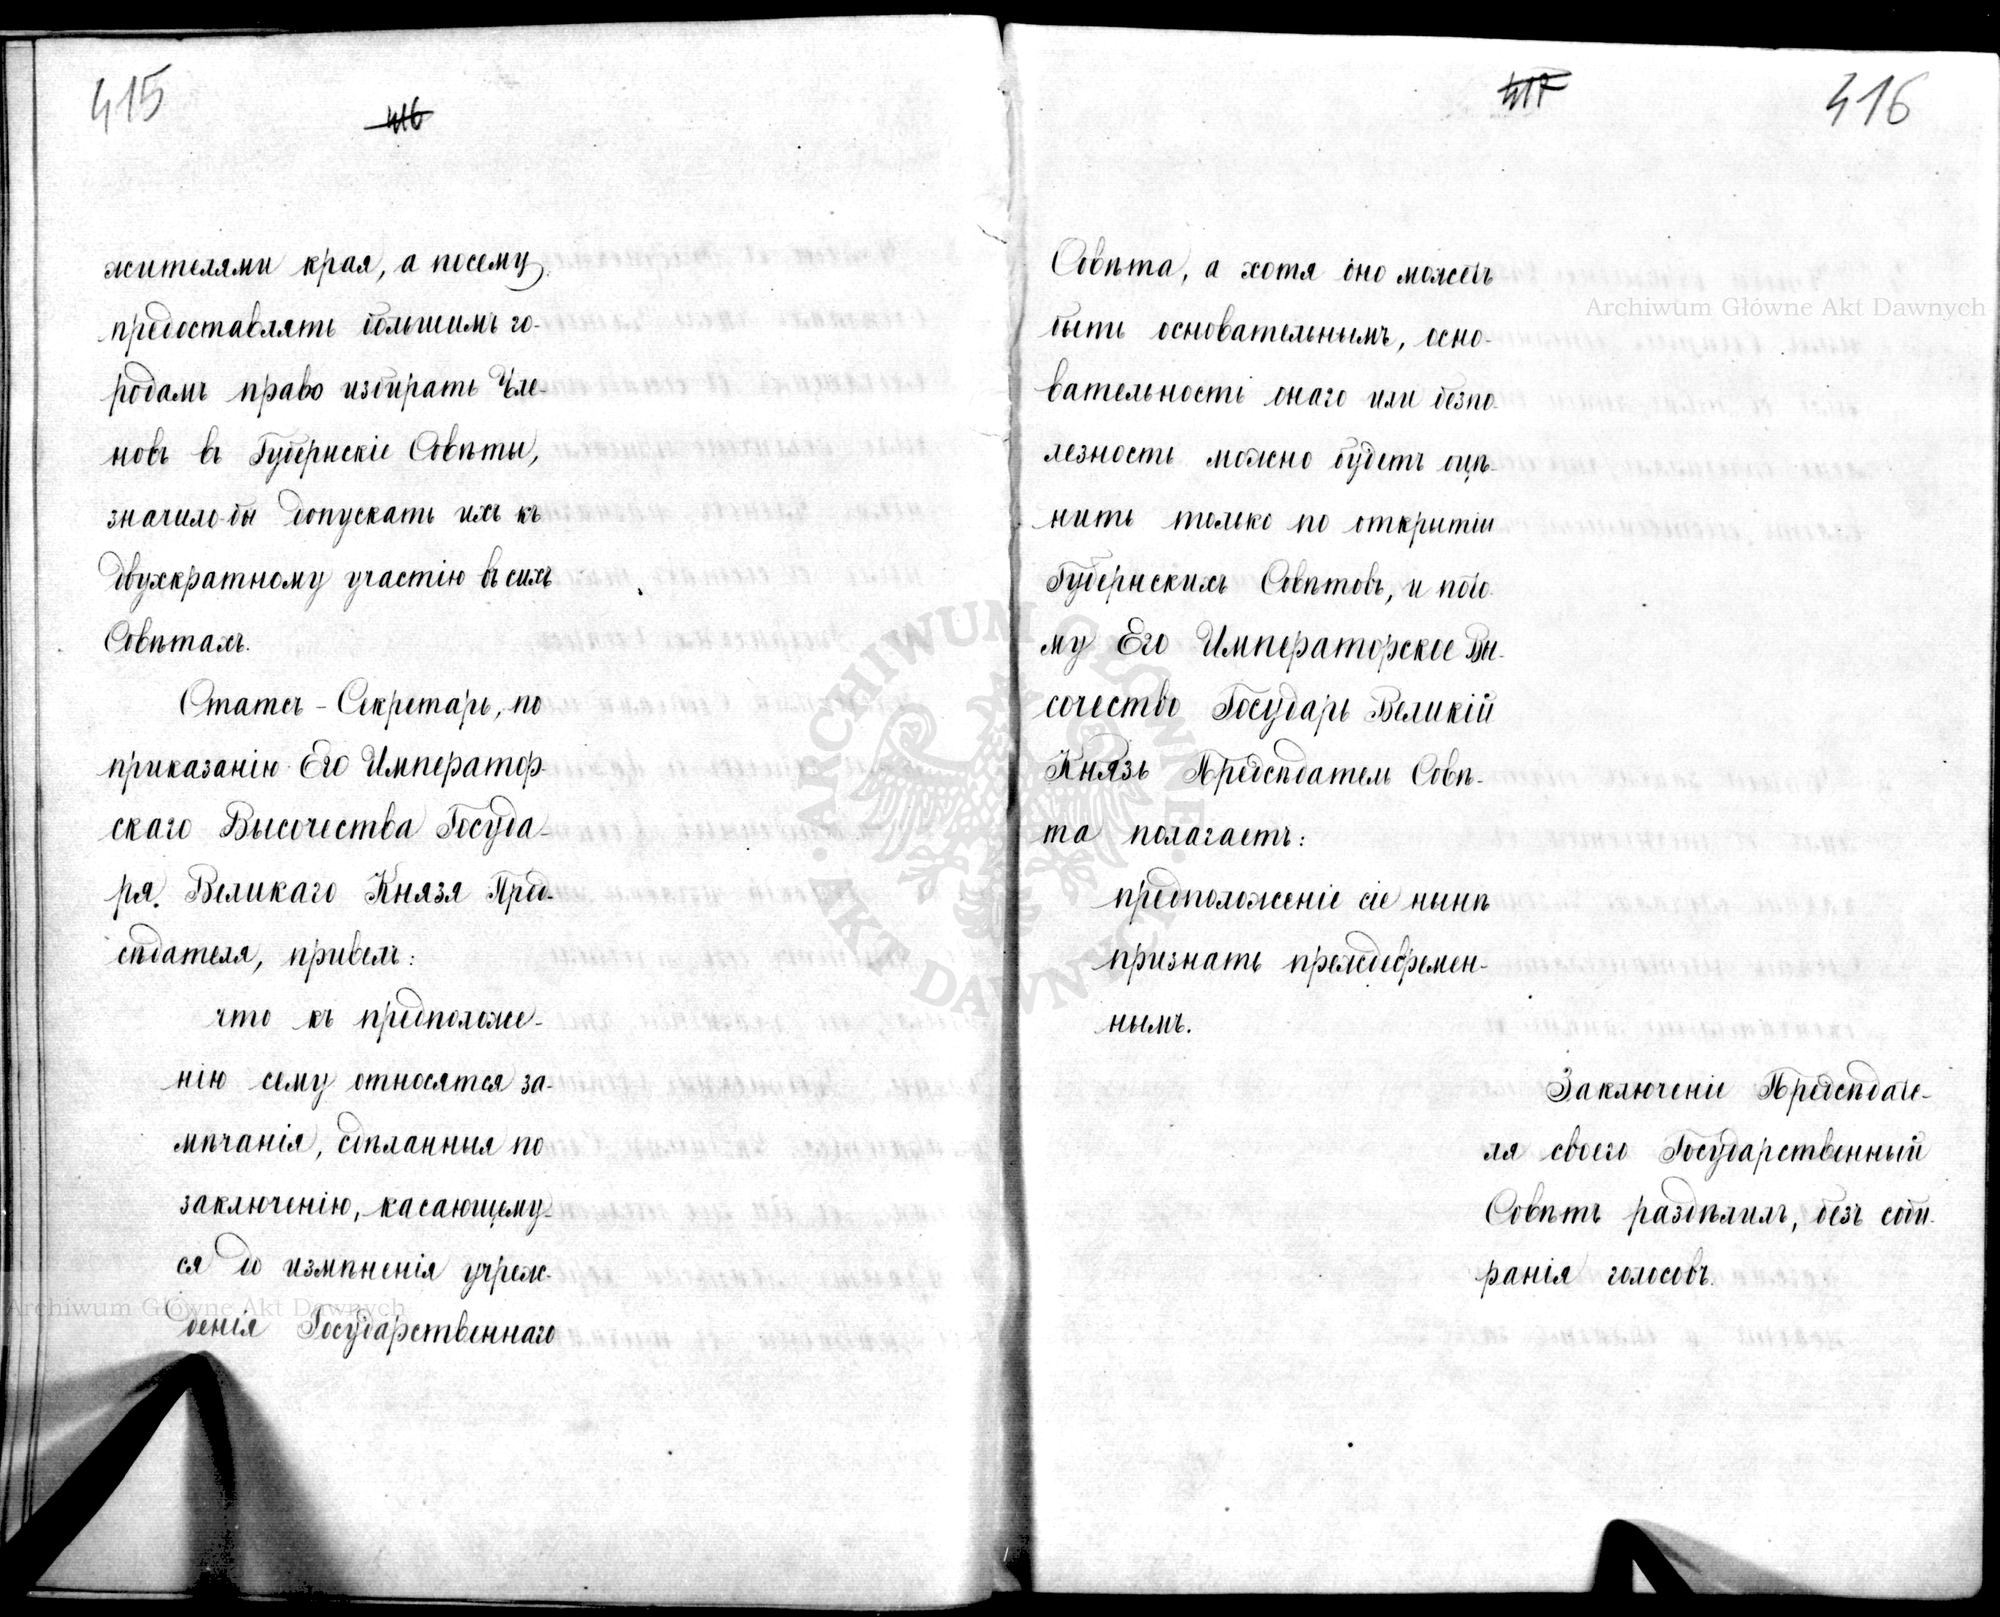 415
416
жителями края, а посему
предоставлять большимъ го-
родамъ право избирать Чле-
новъ въ Губернскіе Совѣты,
значило-бы допускать ихъ къ
двухкратному участію въ сихъ
Совѣтахъ.
Статсъ-Секретарь, по
приказанію Его Император-
скаго Высочества Госуда-
ря Великаго Князя Пред-
сѣдателя, привелъ:
что къ предположе-
нію сему относятся за-
мѣчанія, сдѣланныя по
заключенію, касающему-
ся до измѣненія учреж-
денія Государственнаго
417
416
Совѣта, а хотя оно можетъ
быть основательнымъ, осно-
вательность онаго или безпо-
лезность можно будетъ оцѣ-
нить только по открытіи
Губернскихъ Совѣтовъ, и пото-
му Его Императорское Вы-
сочество Государь Великій
Князь Предсѣдатель Совѣ-
та полагаетъ:
предположеніе сіе нынѣ
признать преждевремен-
нымъ.
Заключеніе Предсѣдате-
ля своего Государственный
Совѣтъ раздѣлилъ, безъ соби-
ранія голосовъ.
Archiwum Główne Akt Dawnych
Archiwum Główne Akt Dawnych
ARCHIWUM GŁÓWNE
AKT DAWNYCH